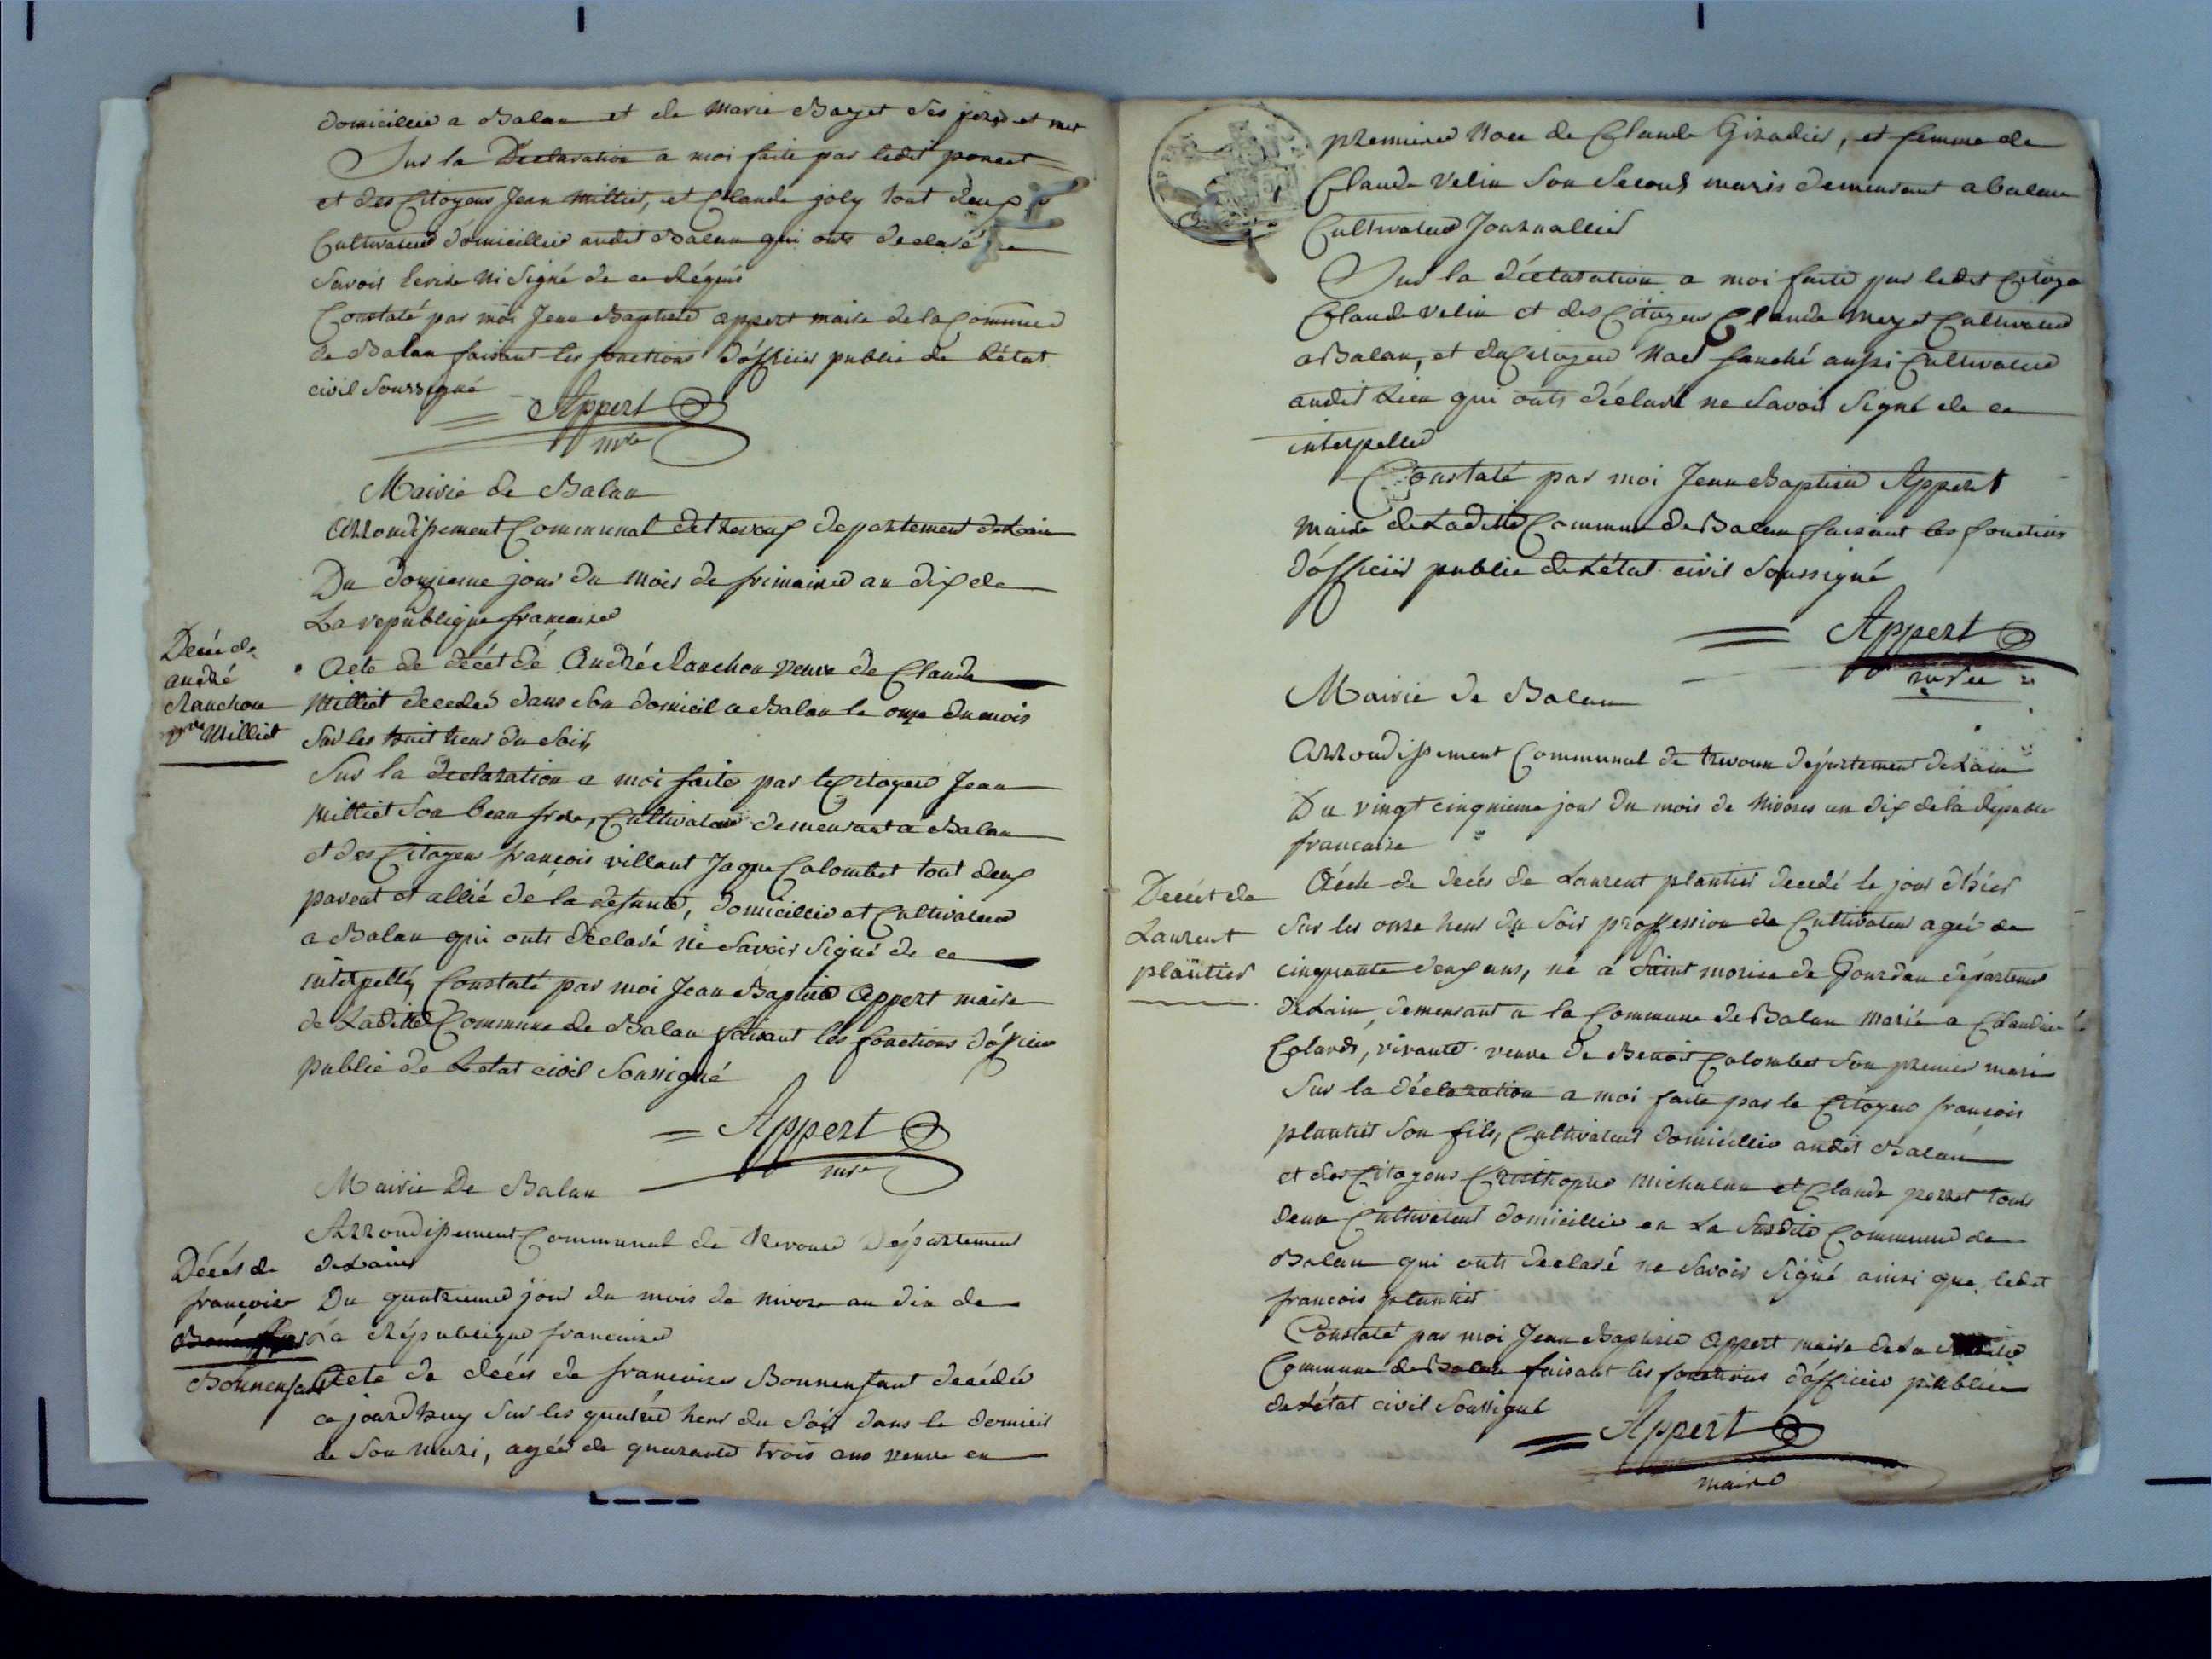 domicillié a Balan et de Marie Bayet ses pere et mer
Sur la Déclaration a moi faite par ledit poncet
et des Citoyens Jean Milliet, et Claude joly tout deux
Cultivateur domicillié audit Balan qui onts declaré ne
savoir Ecrire ni Signé de ce Réquis
Constaté par moi Jean Baptiste appert maire de la Commune
de Balan faisant les fonctions d'officier public de L'état
civil Soussigné
Appert
mre
Mairie de Balan
Arrondissement Communal de trevoux département de Lain
Du douzieme jour du mois de frimaire an dix de
La republique francaise
Decée de
andré
Ranchon
vve Milliet
Acte de décét de André Ranchon veuve de Claude
Milliet decedeé dans son domicil a Balan le onze du mois
Sur les huit heur du Soir
Sur la declaration a moi faite par le Citoyen Jean
Milliet Son beau frere, Cultivateur demeurant a Balan
et des Citoyens francois villant Jaque Colombet tout deux
parent et allié de la défunte, domicillié et Cultivateur
a Balan qui onts déclaré ne Savoir Signé de ce
interpellé, Constaté par moi Jean Baptiste Appert maire
de Laditte Commune de Balan faisant les fonctions d'officier
public de Letat civil Soussigné
Appert
mre
Mairie De Balan
Arrondissement Communal de trevoux Département
de Lain
Décés de
françoise
Bonnenfant
Du quatrieme jour du mois de nivose an dix de
La République francaise
Acte de decés de francoise Bonnenfant decédée
ce jourdhuy Sur les quatre heur du Soir dans le domicil
de Son mari, ageé de quarante trois ans veuve en
premiere noce de Claude Giradier, et femme de
Claude velin Son Second maris demeurant a balan
Cultivateur Journallier
Sur la déclaration a moi faite par ledit Citoye
Claude velin et des Citoyens Claude Meyet Cultivateur
a Balan, et du Citoyen Noel fauché aussi Cultivateur
audit Lieu qui onts déclaré ne Savoir Signé de ce
interpellé
Constaté par moi Jean Baptiste Appert
Maire de Laditte Commune de Balan faisant les fonctions
d'officier public de L'état civil Soussigné
Appert
Mairie de Balan
Arrondissement Communal de trevoux département de Lain
Du vingt cinquieme jour du mois de Nivoses an dix de la Republi
francaise
Decét de
Laurent
plantier
Acte de decés de Laurent plantier decedé le jour d'hier
Sur les onze heur du Soir proffession de Cultivateur ageé de
cinquante deux ans, né a Saint morice de Gourdan département
de Lain, demeurant a la Commune de Balan marié a Claudine
Colard, vivante veuve de Benoit Colombet Son premier mari
Sur la déclaration a moi faite par le Citoyen francois
plantier Son fils, Cultivateur domicillié audit Balan
et des Citoyens Cristhophe Michalan et Claude perret tout
deux Cultivateur domicillié en La Susditte Commune de
Balan qui onts declaré ne Savoir Signé ainsi que ledit
francois plantier
Constaté par moi Jean Baptiste Appert maire de La
Commune de Balan faisant les fonctions d'officier publicie
de L'état civil Soussigné
Appert
maire